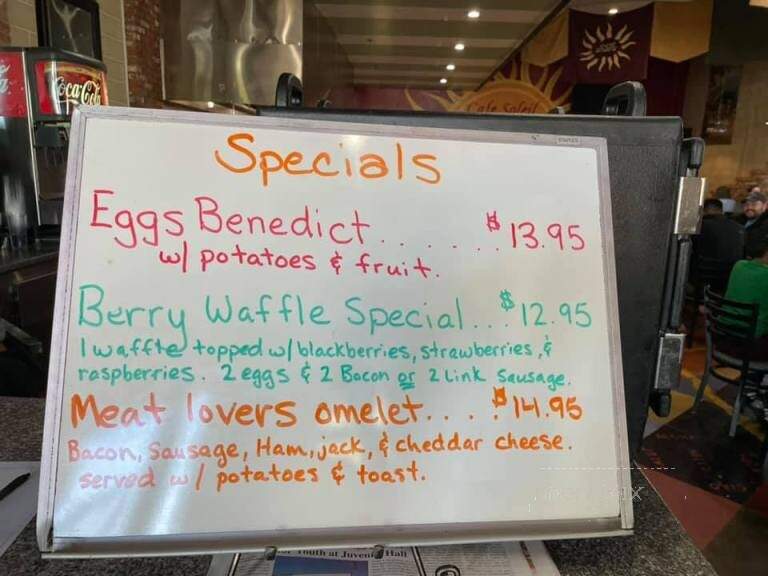 Coca-Cola
Cafe Soleil
Specials
Eggs Benedict...... $13.95
w/ potatoes & fruit.
Berry Waffle Special... $12.95
1 waffle topped w/ blackberries, strawberries, &
raspberries. 2 eggs & 2 Bacon or 2 Link Sausage.
Meat lovers omelet.... $14.95
Bacon, Sausage, Ham, jack, & cheddar cheese.
served w/ potatoes & toast.
Youth at Juvenile Hall